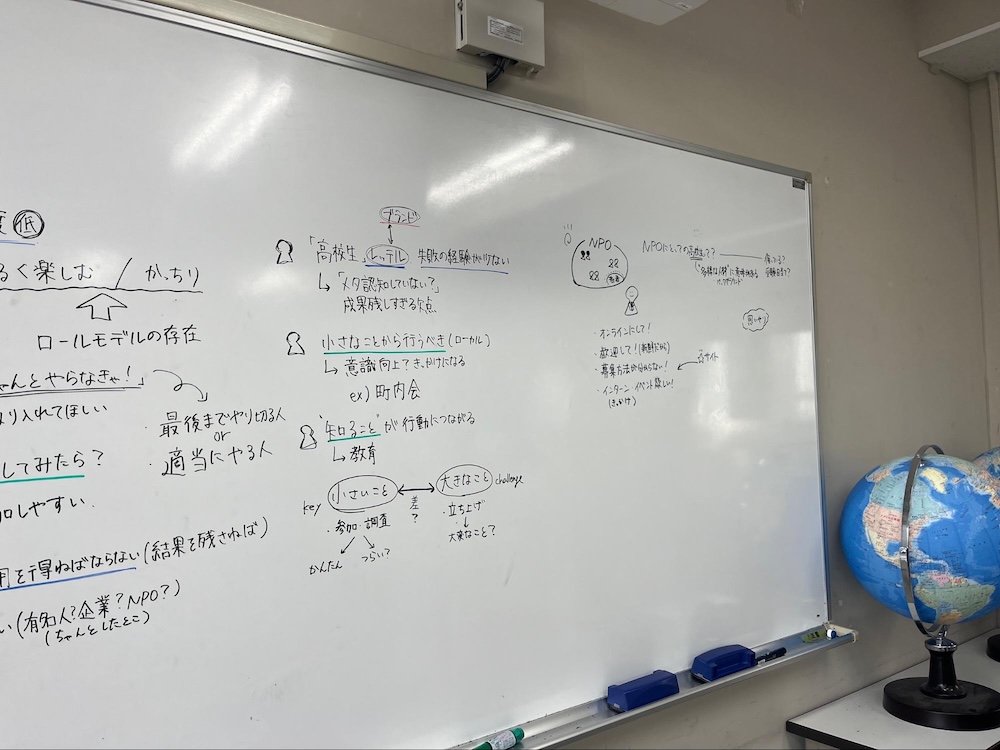 度 低
るく楽しむ / かっちり
ロールモデルの存在
ゃんとやらなきゃ！」
り入れてほしい
・最後までやり切る人
or
・適当にやる人
してみたら？
加しやすい.
を得ねばならない(結果を残さねば)
い(有名人？企業？NPO？)
(ちゃんとしたとこ)
ブランド
「高校生」レッテル 失敗の経験が少ない
↳「メタ認知していない？」
成果残しすぎる欠点
小さなことから行うべき(ローカル)
↳ 意識向上？きっかけになる
ex) 町内会
"知ること"が行動につながる
↳ 教育
key 小さいこと ↔ 大きなこと challenge
差？
・参加・調査
かんたん つらい？
・立ち上げ
↓
大変なこと？
NPO
NPOにとっての高校生って？
"多様な人材"に意味がある
バックグラウンド
・オンラインにして！
・歓迎して！
・募集方法が分からない！
・インターン・イベント欲しい！
(きっかけ)
サイト